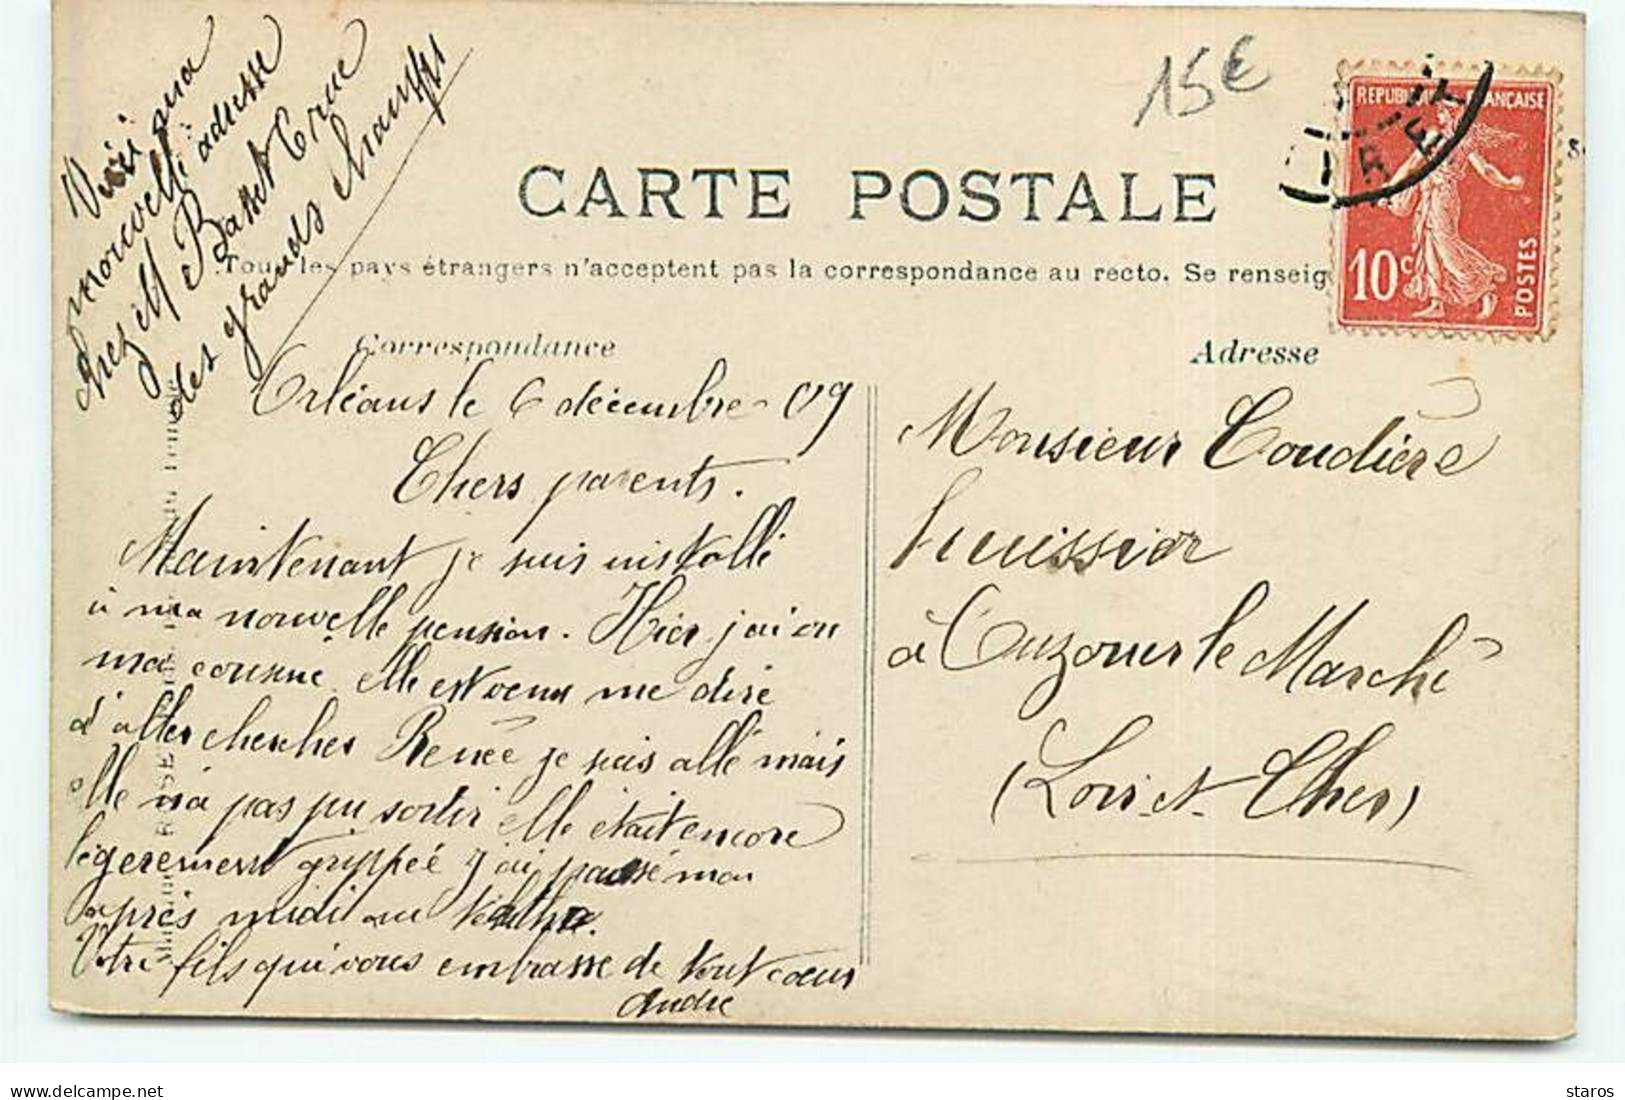 Voici ma
nouvelle adresse
chez M Basset 6 rue
des grands champs
15€
REPUBLIQUE FRANÇAISE
10c
POSTES
CARTE POSTALE
Tous les pays étrangers n'acceptent pas la correspondance au recto. Se renseig
Correspondance
Orléans le 6 décembre - 09
Chers parents.
Maintenant je suis installé
à ma nouvelle pension. Hier j'ai vu
ma cousine elle est venu me dire
d'aller chercher Renée je suis allé mais
elle n'a pas pu sortir elle était encore
légerement grippée j'ai passé mon
après midi au théâtre.
Votre fils qui vous embrasse de tout coeur
André
Adresse
Monsieur Coudière
huissier
à Ouzouer le Marché
(Loir-et-Cher)
staros